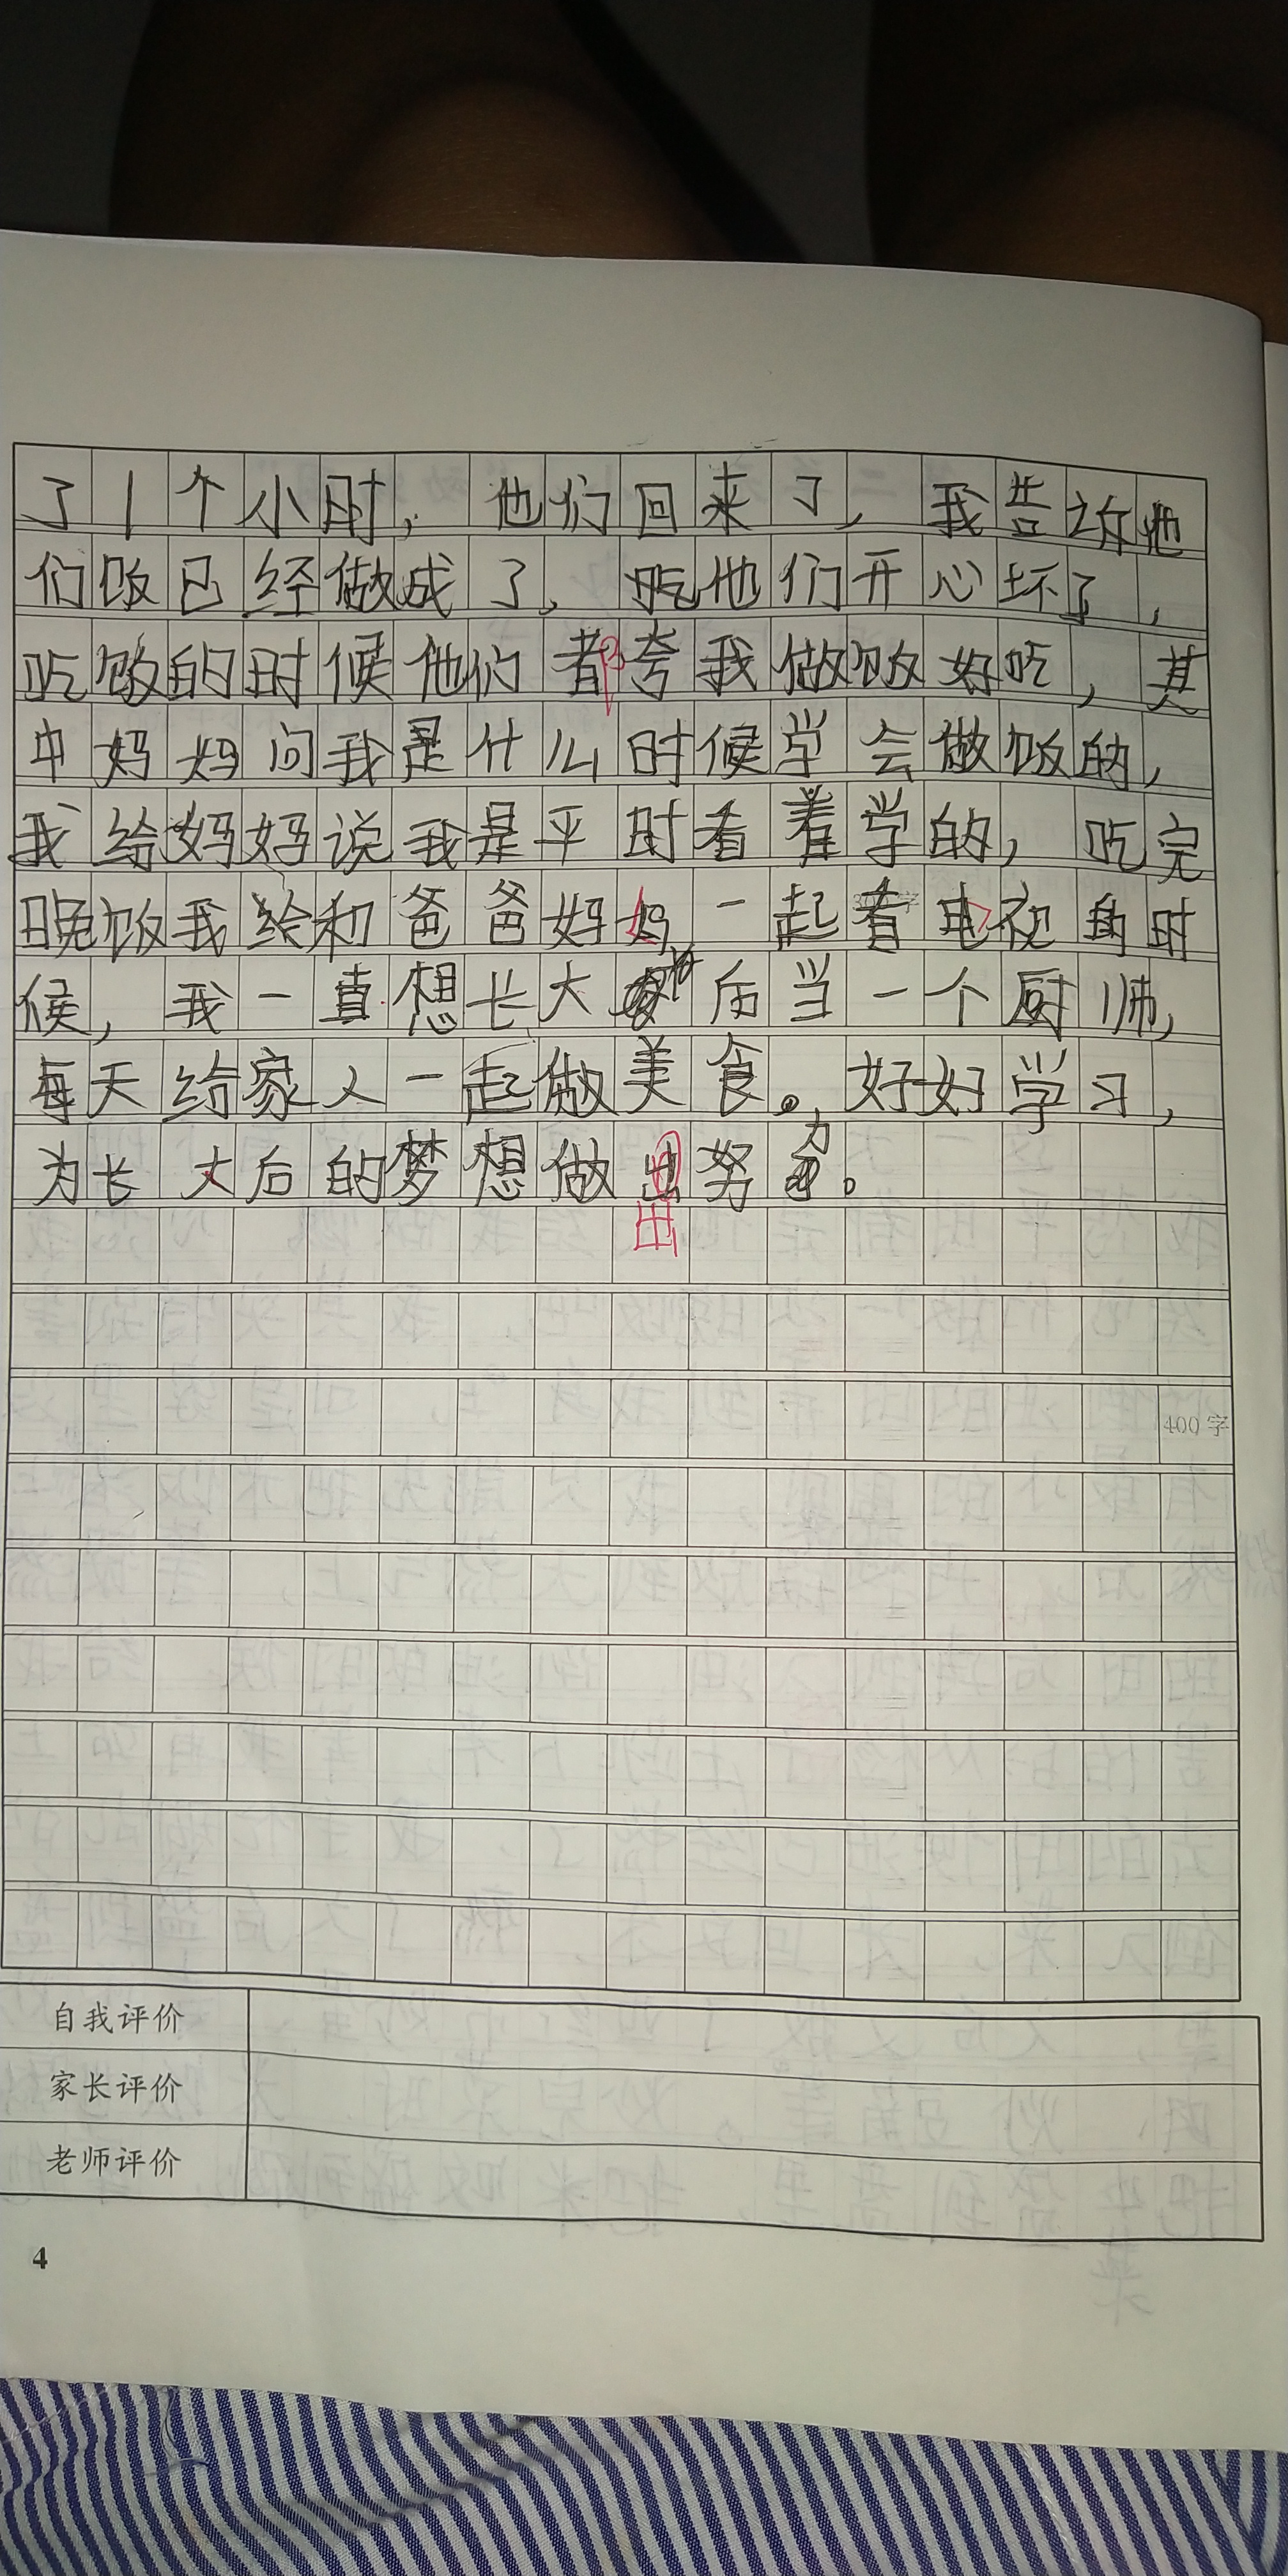 了1个小时，他们回来了，我告诉他
们饭已经做成了，吃他们开心坏了，
吃饭的时候他们都夸我做饭好吃，其
中妈妈问我是什么时候学会做饭的，
我给妈妈说我是平时看着学的，吃完
晚饭我给和爸爸妈妈一起看电视的时
候，我一直想长大后当一个厨师，
每天给家人一起做美食。好好学习，
为长大后的梦想做出努力。
出
400字
自我评价
家长评价
老师评价
4